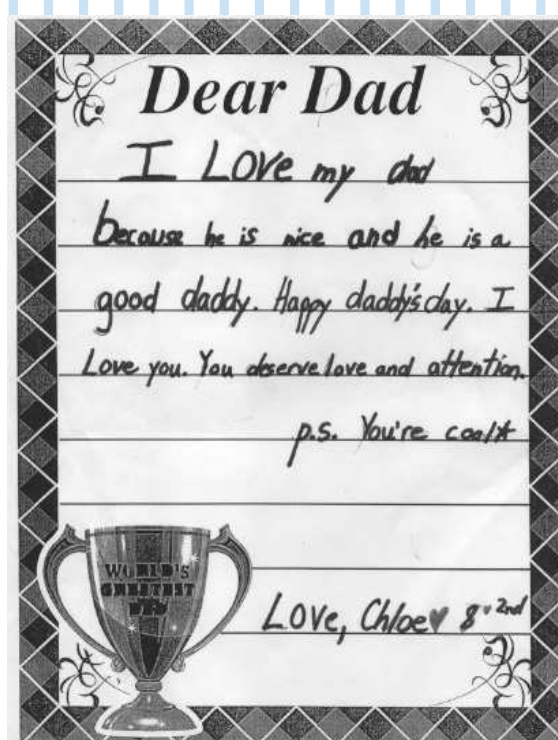 Dear Dad
I LOVe my dad
because he is nice and he is a
good daddy. Happy daddy's day. I
Love you. You deserve love and attention.
p.s. You're cool☆
WORLD'S
GREATEST
DAD
LOVe, Chloe♥ 8 ♥ 2nd